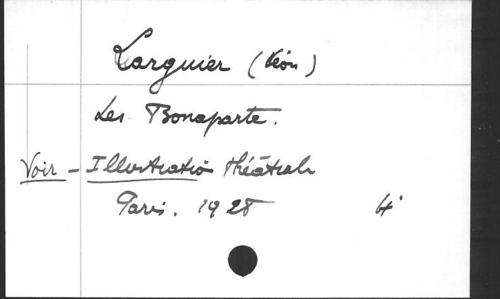 Larguier (Léon)
Les Bonaparte.
Voir - Illustration théâtrale
Paris. 1928 4°